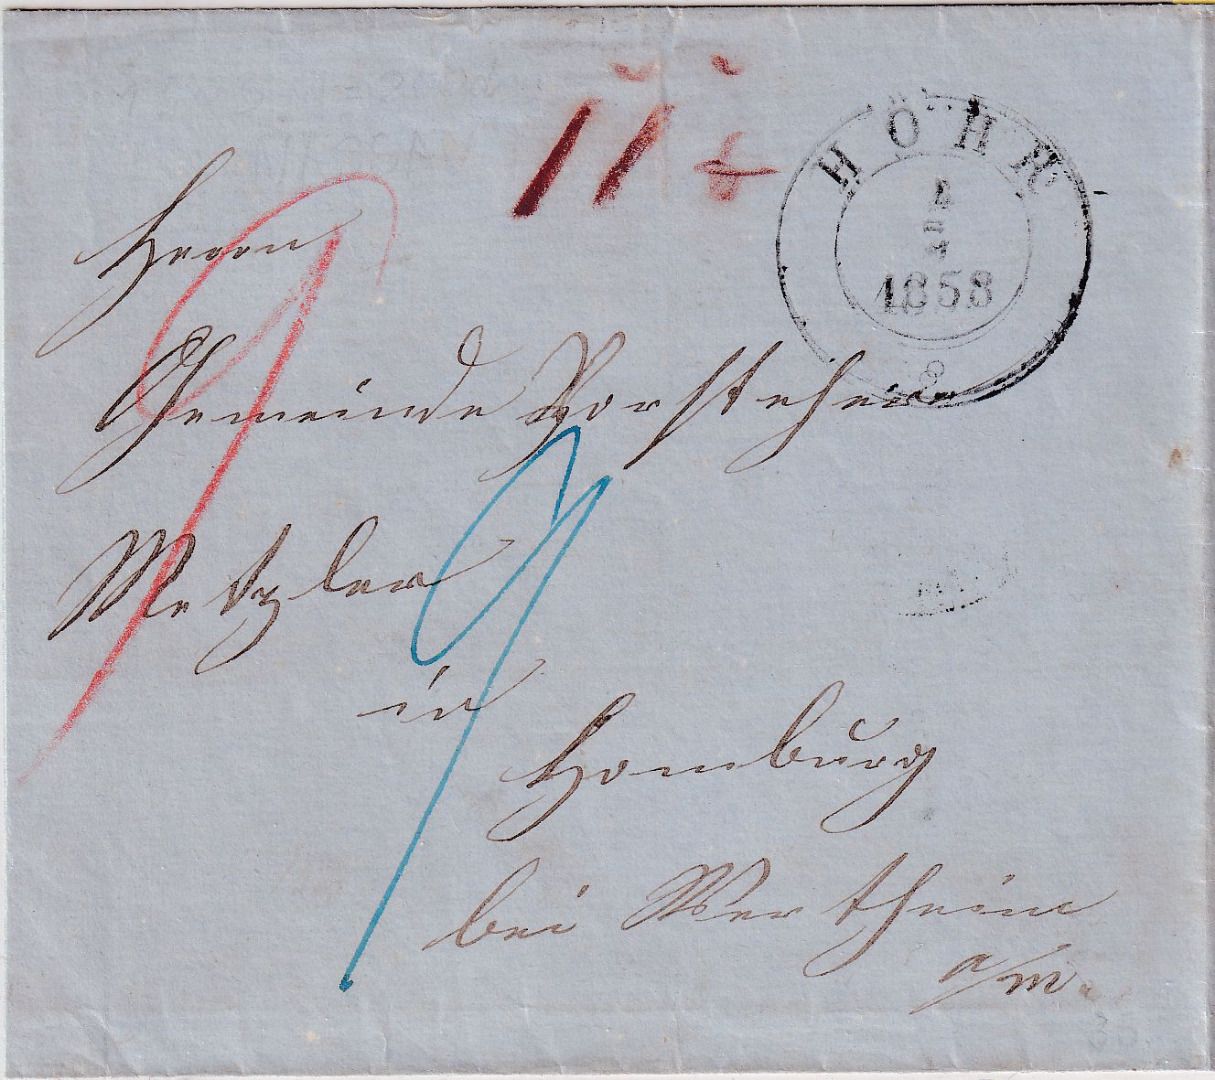 HÖHR
1858
Herrn
Gemeinde Vorsteher
Metzler
in
Homburg
bei Wertheim
a/m